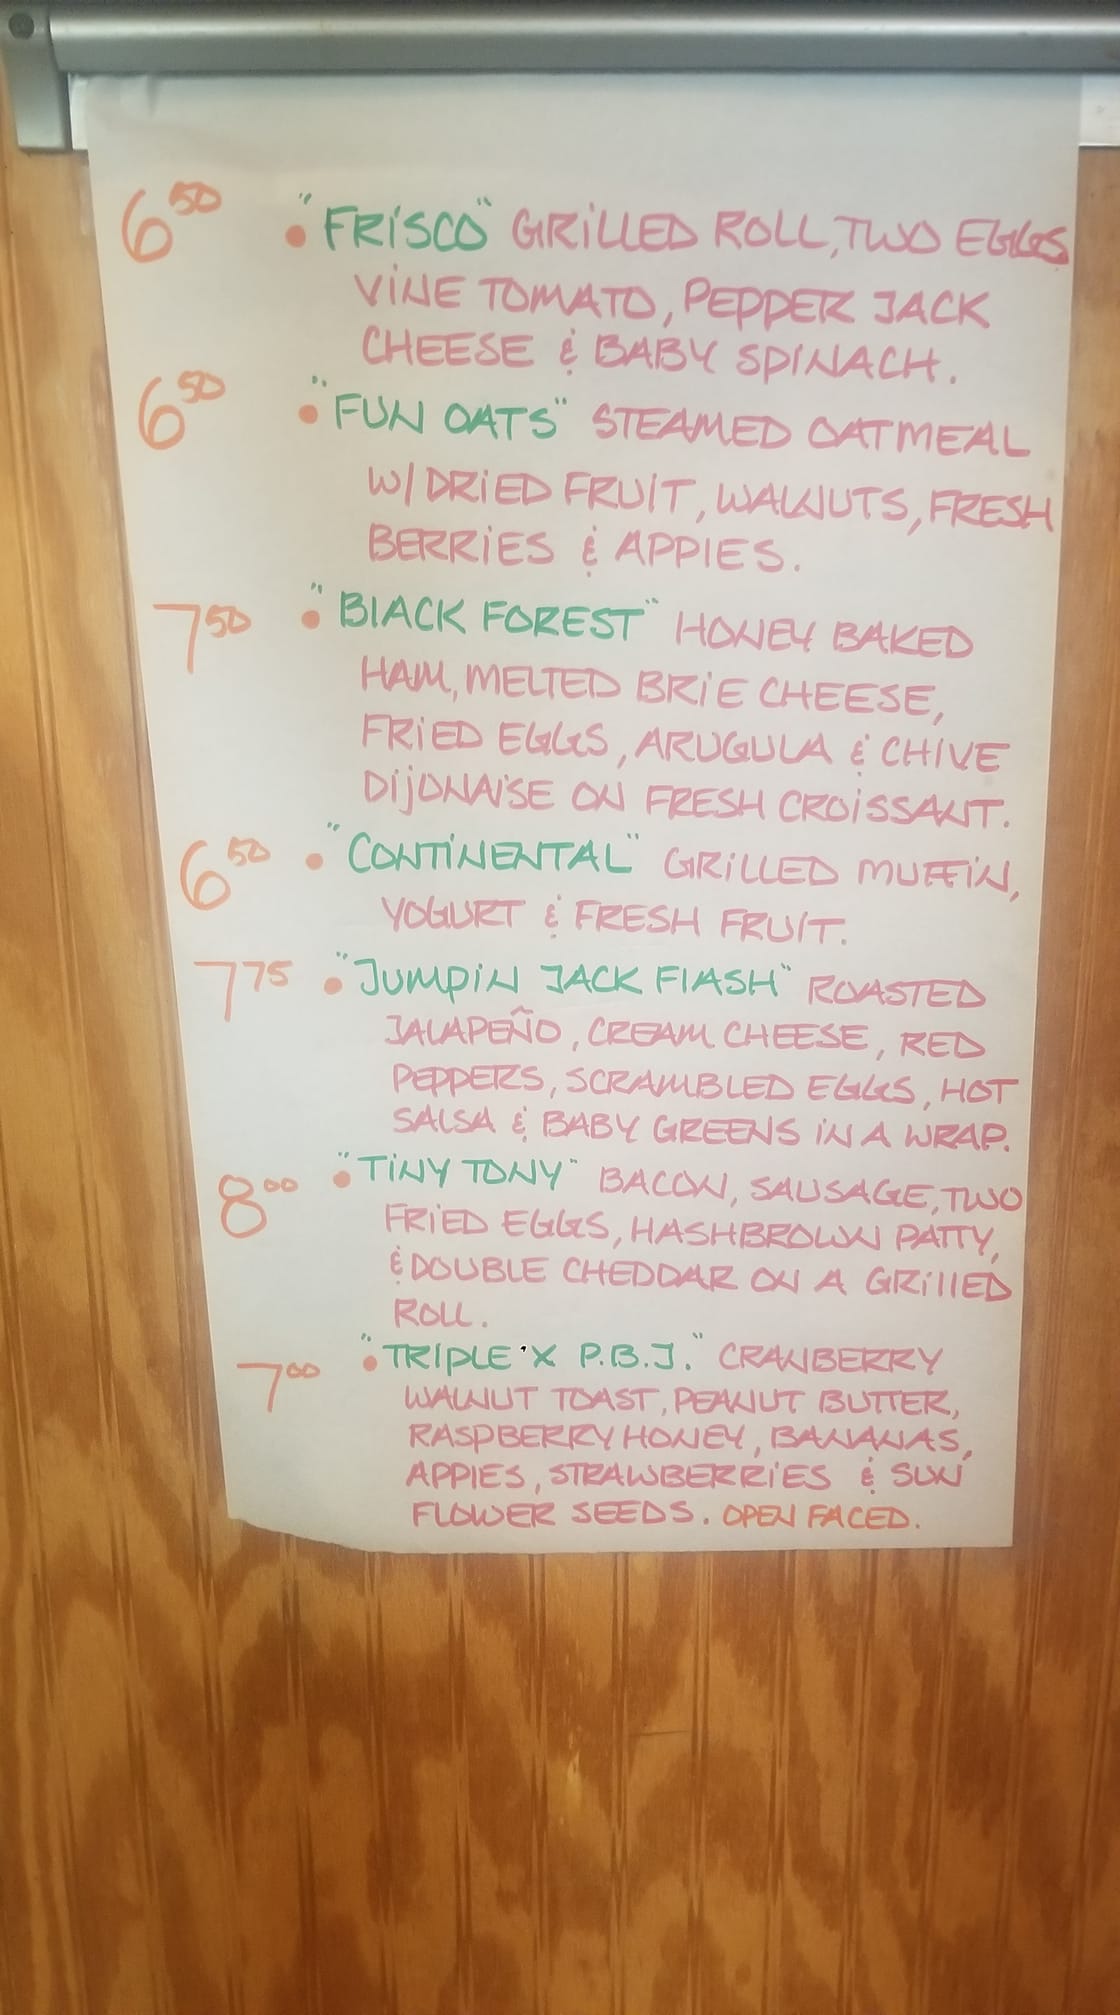 6.50 • "FRISCO" GRILLED ROLL, TWO EGGS
VINE TOMATO, PEPPER JACK
CHEESE & BABY SPINACH.
6.50 • "FUN OATS" STEAMED OATMEAL
W/ DRIED FRUIT, WALNUTS, FRESH
BERRIES & APPLES.
7.50 • "BLACK FOREST" HONEY BAKED
HAM, MELTED BRIE CHEESE,
FRIED EGGS, ARUGULA & CHIVE
DIJONAISE ON FRESH CROISSANT.
6.50 • "CONTINENTAL" GRILLED MUFFIN,
YOGURT & FRESH FRUIT.
7.75 • "JUMPIN JACK FLASH" ROASTED
JALAPEÑO, CREAM CHEESE, RED
PEPPERS, SCRAMBLED EGGS, HOT
SALSA & BABY GREENS IN A WRAP.
8.00 • "TINY TONY" BACON, SAUSAGE, TWO
FRIED EGGS, HASHBROWN PATTY,
& DOUBLE CHEDDAR ON A GRILLED
ROLL.
7.00 • "TRIPLE 'X P.B.J." CRANBERRY
WALNUT TOAST, PEANUT BUTTER,
RASPBERRY HONEY, BANANAS,
APPLES, STRAWBERRIES & SUN
FLOWER SEEDS. OPEN FACED.